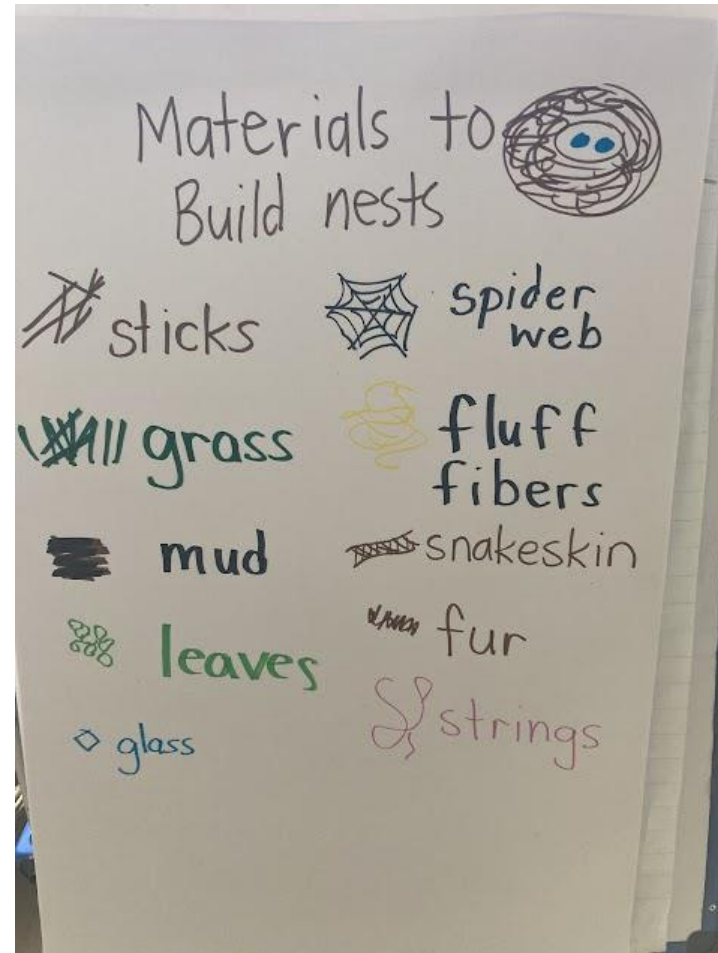 Materials to
Build nests
sticks
grass
mud
leaves
glass
spider
web
fluff
fibers
snakeskin
fur
strings